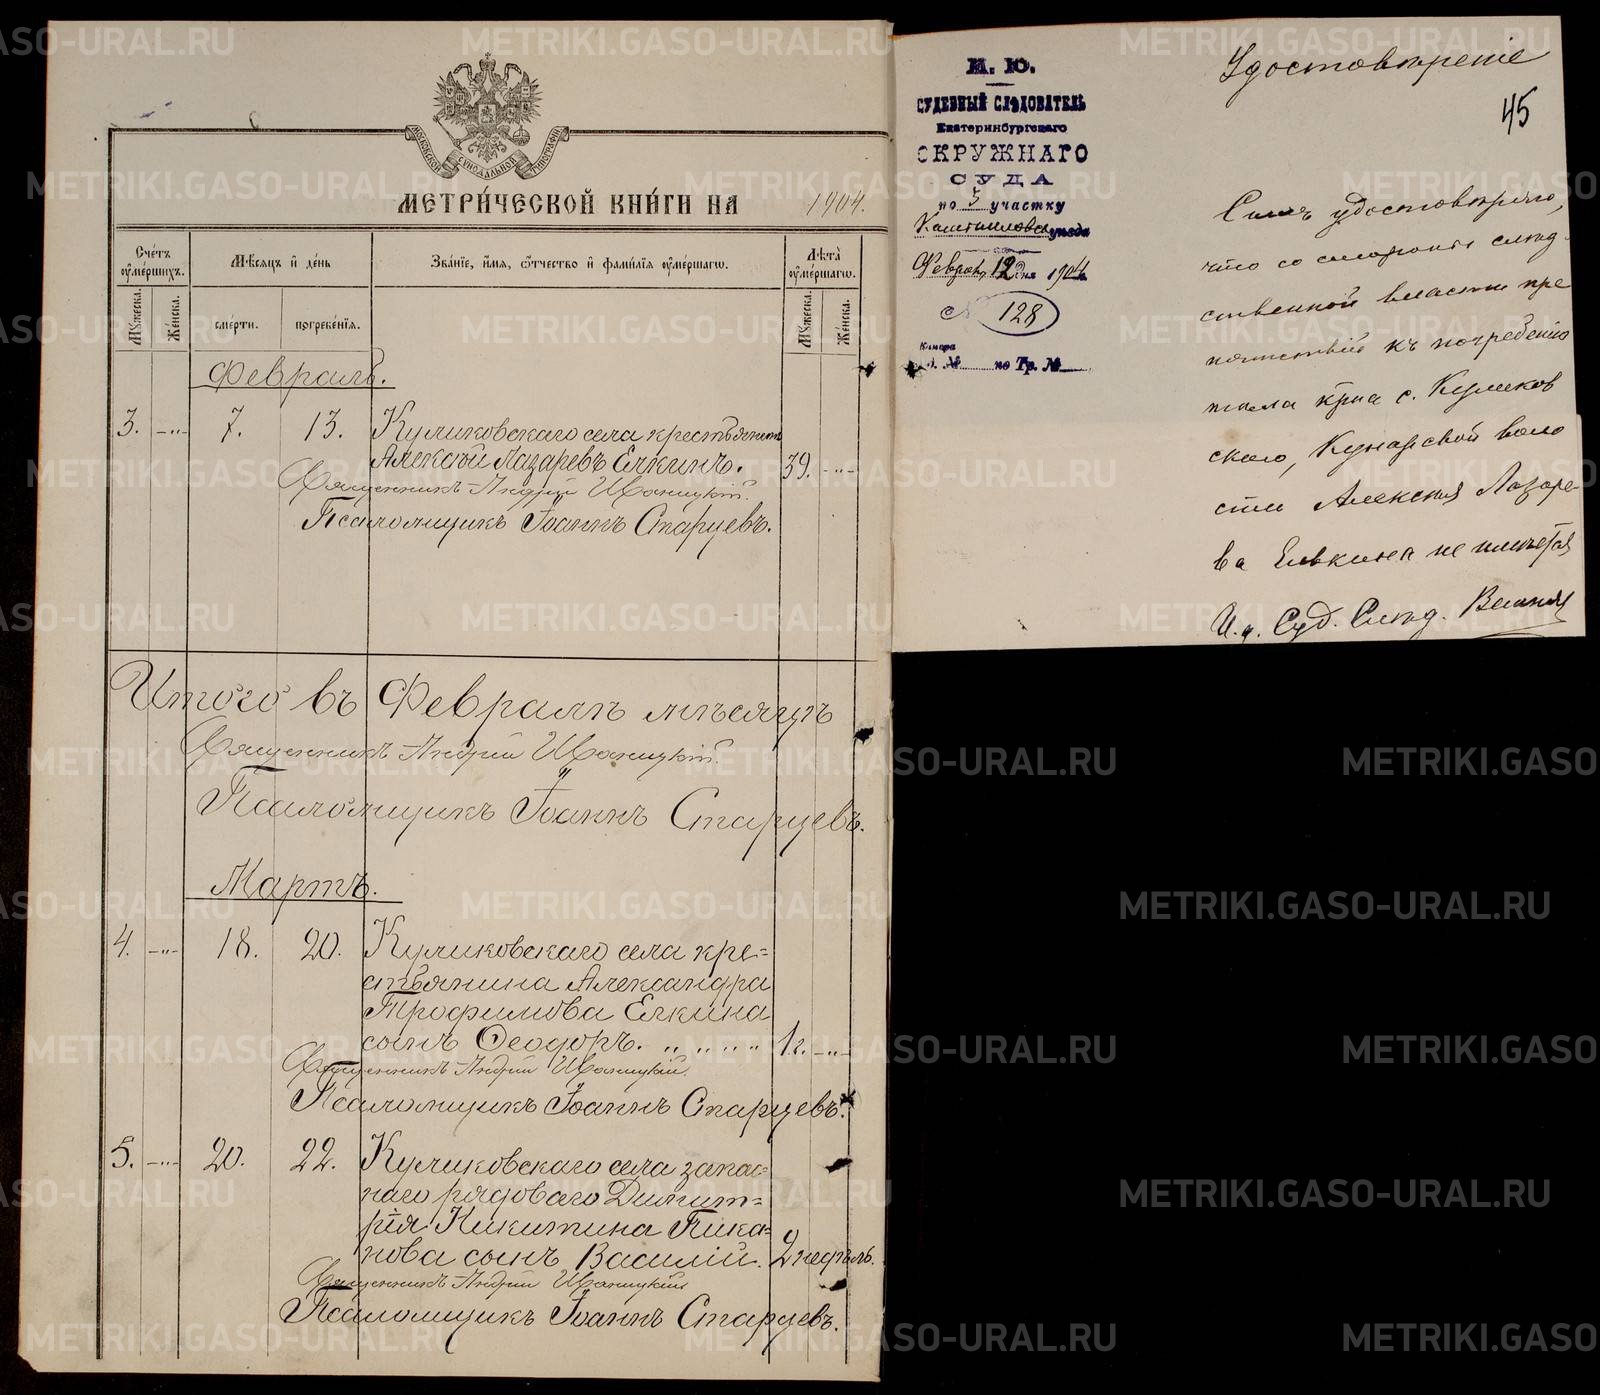 МОСКОВСКОЙ СѴНОДАЛЬНОЙ ТИПОГРАФІИ
МЕТРИ́ЧЕСКОЙ КНИ́ГИ НА 1904.
Сче́тъ ѹме́ршихъ.
Мѣ́сяцъ и҆ де́нь
Зва́нїе, и҆́мя, ѻ҆́тчество и҆ фами́лїя ѹме́ршагѡ.
Лѣ́та ѹме́ршагѡ.
Мꙋ́жеска.
Же́нска.
сме́рти.
погребе́нїя.
Мꙋ́жеска.
Же́нска.
Февраль.
3. -"- 7. 13. Куликовскаго села крестьянинъ
Алексѣй Лазаревъ Елкинъ. 39. -"-
Священникъ Андрей Иваницкій.
Псаломщикъ Іоаннъ Старцевъ.
Итого въ Февралѣ мѣсяцѣ
Священникъ Андрей Иваницкій.
Псаломщикъ Іоаннъ Старцевъ.
Мартъ.
4. -"- 18. 20. Куликовскаго села кре=
стьянина Александра
Трофимова Елкина
сынъ Ѳеодоръ. " " " " " 1 г. -"-
Священникъ Андрей Иваницкій.
Псаломщикъ Іоаннъ Старцевъ.
5. -"- 20. 22. Куликовскаго села запас=
наго рядоваго Димит=
рія Никитина Пика=
нова сынъ Василій. 2 недѣль.
Священникъ Андрей Иваницкій
Псаломщикъ Іоаннъ Старцевъ.
М. Ю.
СУДЕБНЫЙ СЛѢДОВАТЕЛЬ
Екатеринбургскаго
ОКРУЖНАГО
СУДА
по 5 участку
Камышловск уѣзда
Феврал 12 дня 1904 г.
№ 128
Камера
д. № по Тр. №
Удостовѣреніе
45
Симъ удостовѣряю,
что со стороны слѣд-
ственной власти пре
пятствій къ погребенію
тѣла кр-на с. Куликов
скаго, Кунарской воло
сти Алексѣя Лазаре-
ва Елькина не имѣется
И. д. Суд. Слѣд.
METRIKI.GASO-URAL.RU